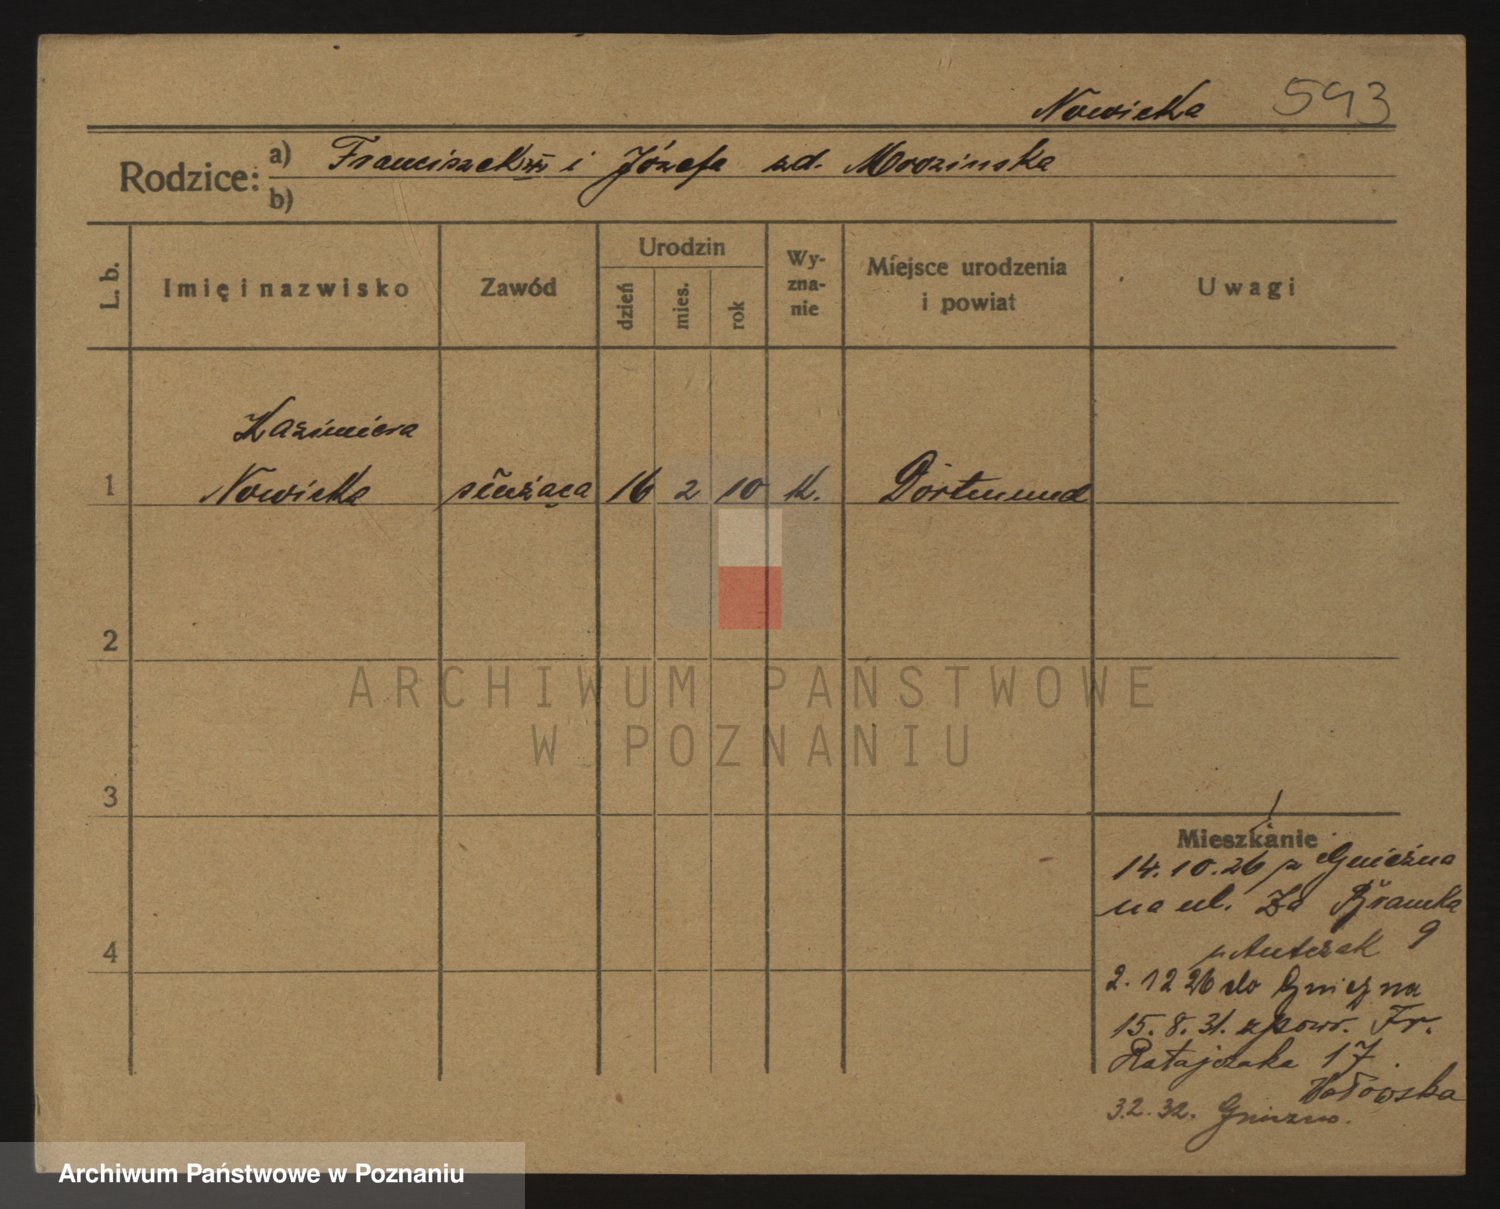 Nowicka 593
Rodzice: a) Franciszek i Józefa zd. Mrozinska
b)
L. b. Imię i nazwisko Zawód Urodzin dzień mies. rok Wyznanie Miejsce urodzenia i powiat Uwagi
Kazimiera
1 Nowicka służąca 16 2 10 k. Dortmund
2
ARCHIWUM PAŃSTWOWE
W POZNANIU
3
Mieszkanie
14.10.26 z Gniezna
na ul. Za Bramką
9
u Antczak
4
2.12 26 do Gniezna
15.8.31. z powr. Fr.
Ratajczaka 17
3.2.32. Gniezno.
Archiwum Państwowe w Poznaniu